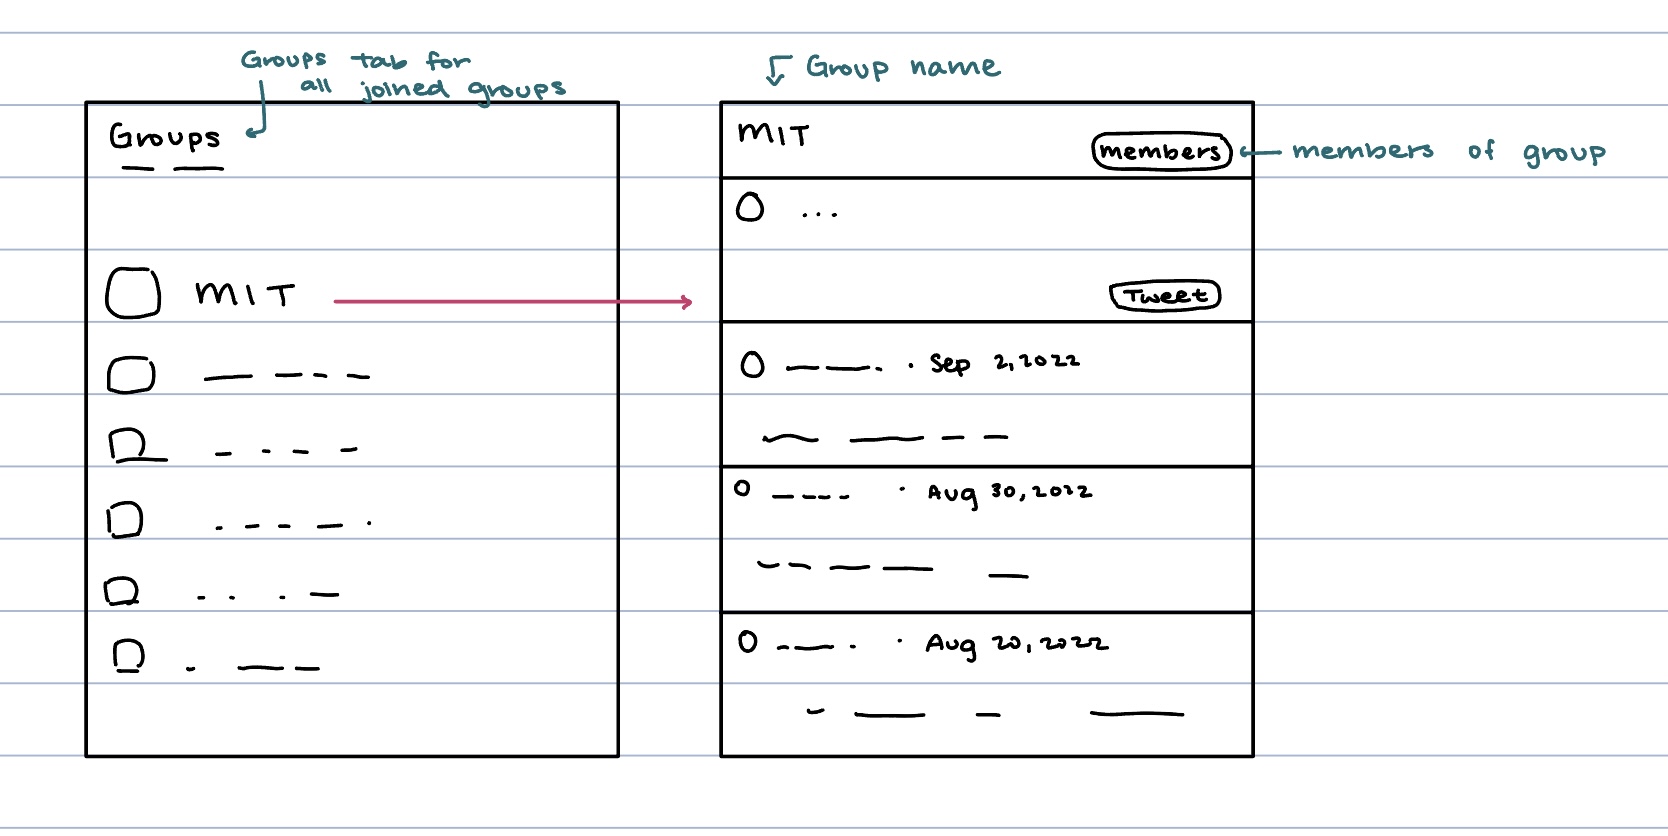 Groups tab for
all joined groups
Groups
MIT
Group name
MIT
members
members of group
...
Tweet
· Sep 2, 2022
· Aug 30, 2022
· Aug 20, 2022